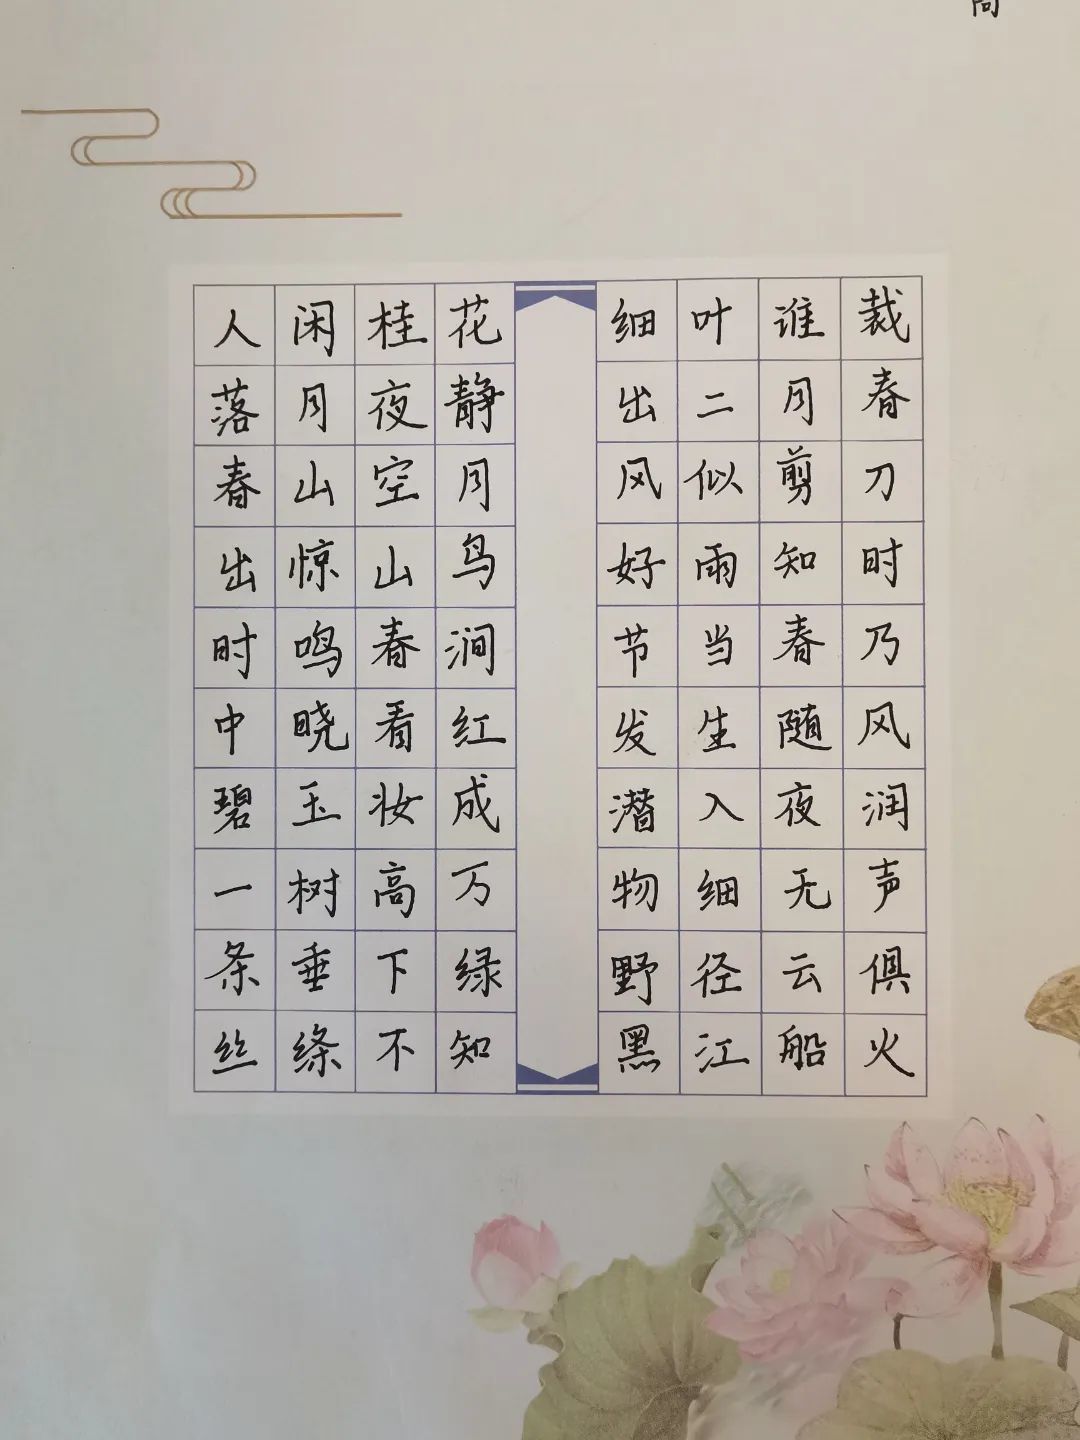 人闲桂花
落月夜静
春山空月
出惊山鸟
时鸣春涧
中晓看红
碧玉妆成
一树高万
条垂下绿
丝绦不知
细叶谁裁
出二月春
风似剪刀
好雨知时
节当春乃
发生随风
潜入夜润
物细无声
野径云俱
黑江船火